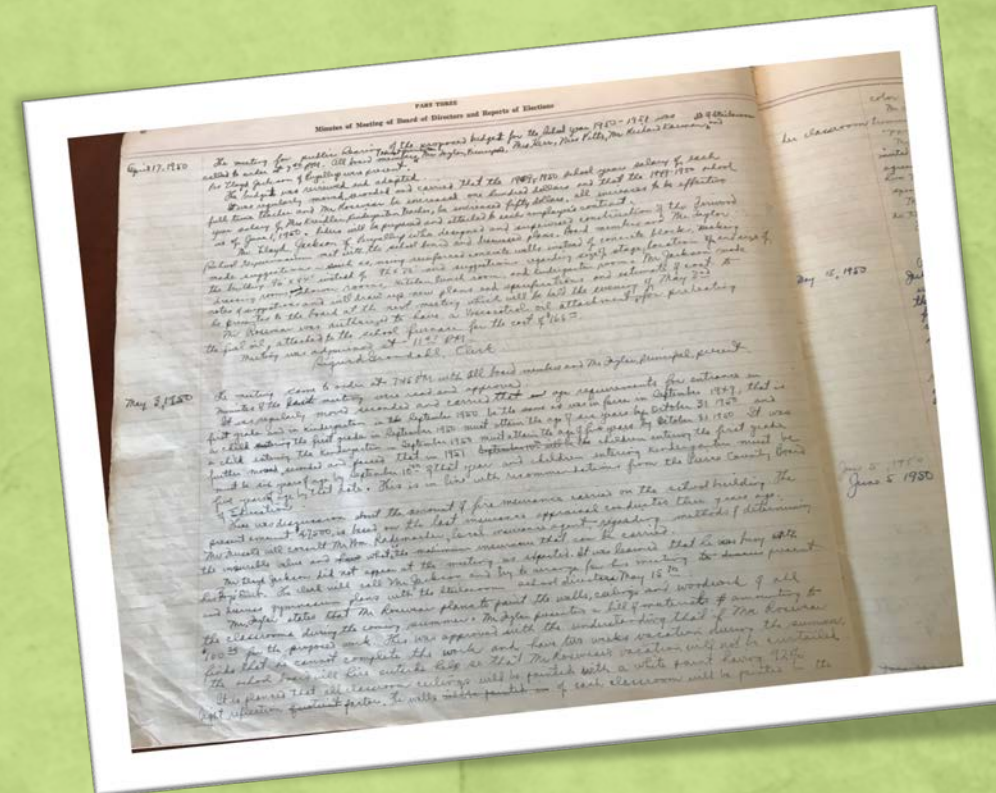 PART THREE
Minutes of Meeting of Board of Directors and Reports of Elections
April 17, 1950
The meeting for public hearing of the proposed budget for the school year 1950-1951 was
called to order at 7 PM. All board members, Mr Taylor, Principal, Mrs Kerr, Miss Potts, Mr Richard and
Mr Lloyd Jackson of Puyallup were present.
The budget was reviewed and adopted.
It was regularly moved, seconded and carried that the 1949-1950 school years salary of each
full time teacher and Mr Rosevear be increased one hundred dollars and that the 1949-1950 school
year salary of Mrs Kreidler, kindergarten teacher, be increased fifty dollars. all increases to be effective
as of June 1, 1950. Riders will be prepared and attached to each employees contract.
Mr. Lloyd Jackson of Puyallup who designed and supervised construction of the
School Gymnasium met with the school board and discussed plans. Board members and Mr Taylor
made suggestions such as, using reinforced concrete walls instead of concrete blocks, making
the building instead of and suggestions regarding size of stage, location of and size of
dressing rooms, shower rooms, kitchen, lunch room, and kindergarten room. Mr Jackson made
notes of suggestions and will draw up new plans and specifications and estimate of cost to
be presented to the board at the next meeting which will be held the evening of May 2nd
Mr Rosevear was authorized to have a oil attachment for preheating
the fuel oil, attached to the school furnace for the cost of
Meeting was adjourned at 11 PM
Sigurd Grondahl, Clerk
May 2, 1950
The meeting came to order at 7:45 PM with all board members and Mr Taylor, principal, present.
Minutes of the past meeting were read and approved.
It was regularly moved seconded and carried that age requirements for entrance in
first grade and in kindergarten in September 1950 be the same as was in force in September 1949, that is
a child entering the first grade in September 1950 must attain the age of six years by October 31 1950 and
a child entering the Kindergarten in September 1950 must attain the age of five years by October 31 1950. It was
further moved, seconded and passed that in 1951 children entering the first grade
must be six years of age by September 15th of that year and children entering kindergarten must be
five years of age by that date. This is in line with recommendations from the Pierce County Board
of Education.
There was discussion about the amount of fire insurance carried on the school building. The
present amount $47,500, is based on the last insurance appraisal conducted three years ago.
Mr will consult Mr Wm. Rademacher, local insurance agent regarding methods of determining
the insurable value and what the insurance that can be carried.
Mr Lloyd Jackson did not appear at the meeting as expected. It was learned that he was busy with
The clerk will call Mr Jackson and try to arrange for his meeting to present
and discuss gymnasium plans with the school directors May 15th
Mr Taylor states that Mr Rosevear plans to paint the walls, ceilings and woodwork of all
the classrooms during the coming summer. Mr Taylor presented a bill of materials amounting to
for the proposed work. This was approved with the understanding that if Mr Rosevear
finds that he cannot complete the work and have two weeks vacation during the summer,
the school board will hire outside help so that Mr Rosevear's vacation will not be curtailed.
It is planned that all classroom ceilings will be painted with a white paint having 92%
light reflection factor. The walls of each classroom will be painted in the
color
her classroom
May 15, 1950
June 5, 1950
June 5 1950